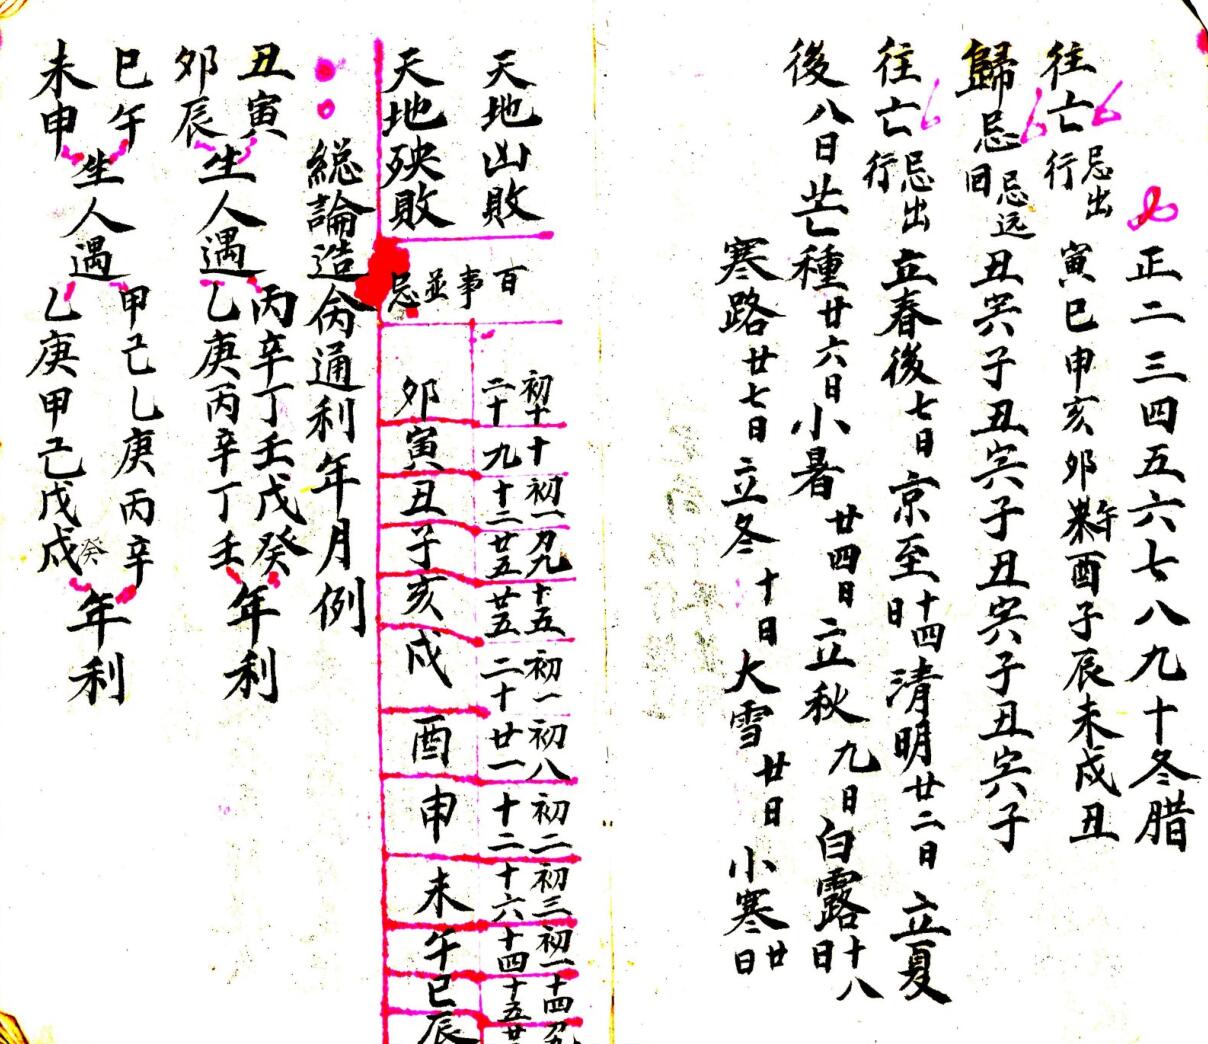 正二三四五六七八九十冬腊
往亡忌出行 寅巳申亥卯午酉子辰未戍丑
歸忌忌远回 丑寅子丑寅子丑寅子丑寅子
往亡忌出行 立春後七日京至十四日清明廿二日立夏
後八日芒種廿六日小暑廿四日立秋九日白露十八日
寒路廿七日立冬十日大雪廿日小寒廿日
天地凶敗
天地殃敗
百事並忌
初十二十
十九
初一十二
廿五
十五廿五
初一二十
初八廿一
初二十二
初三十六
初一十四
十四十五
卯寅丑子亥戍酉申未午巳辰
総論造㑹通利年月例
丑寅卯辰生人遇丙辛丁壬戊癸乙庚丙辛丁壬年利
巳午未申生人遇甲己乙庚丙辛乙庚甲己戊癸年利